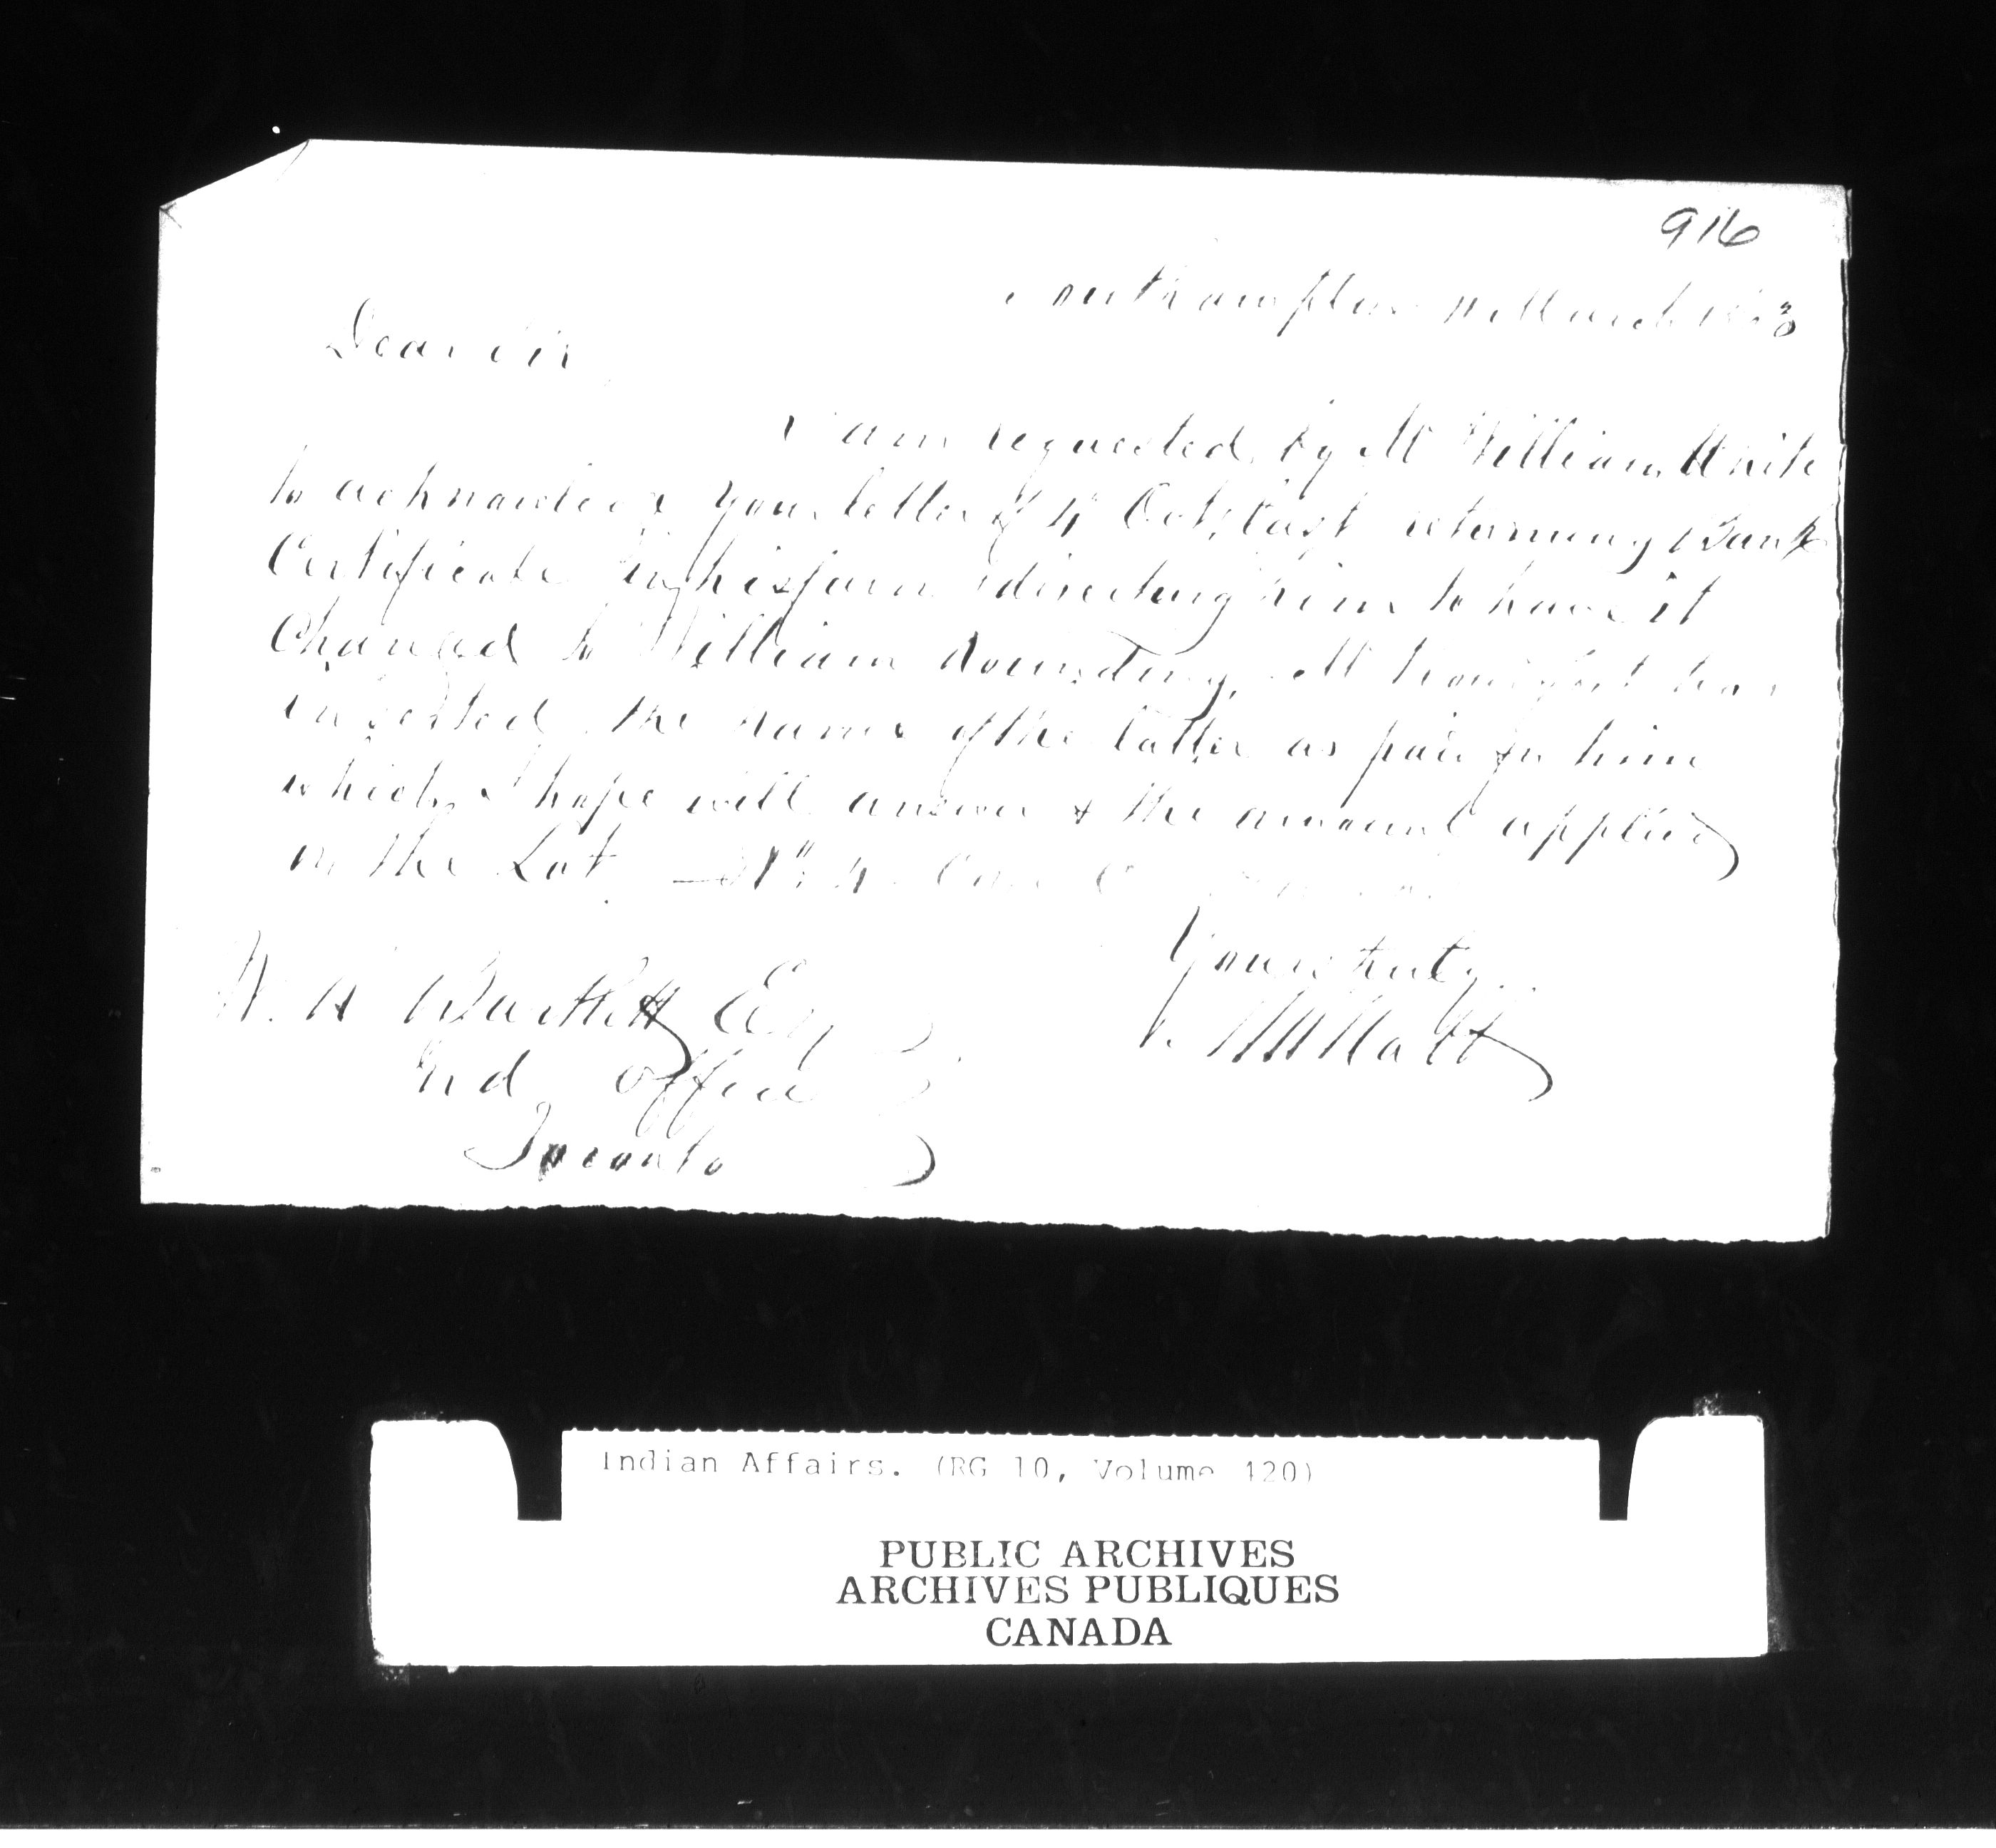 916
Southampton March
Dear Sir
I am requested by Mr William White
to acknowledge your letter of 4 Oct. last returning Bank
Certificate in his favr directing him to have it
Changed to William Rounding, Mr has
inserted the name of the latter as paid for him
which I hope will answer & the amount applied
on the Lot No. 4 Con
Yours truly
W. R. Bartlett Esq
Ind Office
Toronto
Indian Affairs. (RG 10, Volume 420)
PUBLIC ARCHIVES
ARCHIVES PUBLIQUES
CANADA